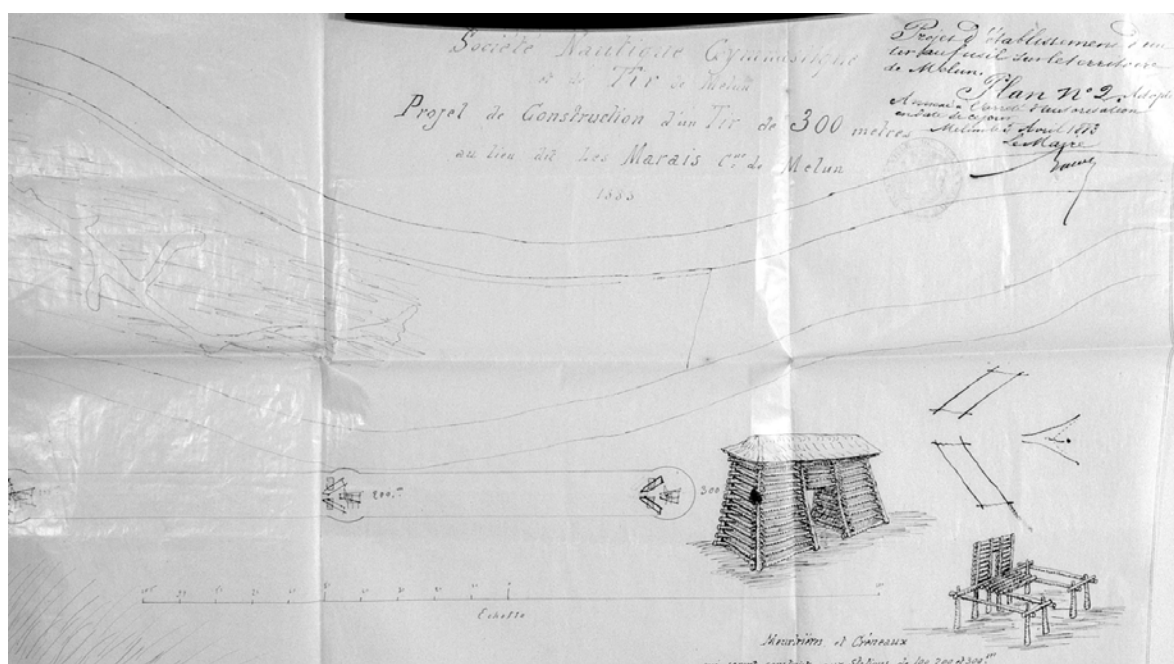 Société Nautique Gymnastique
et de Tir de Melun
Projet de Construction d'un Tir de 300 mètres
au lieu dit Les Marais Cne de Melun
1883
Projet d'établissement d'un
tir au fusil sur le territoire
de Melun.
Plan N° 2 Adopté
Annexé à l'arrêté d'autorisation
en date de ce jour
Melun le 3 Avril 1883
Le Maire
200 m
300
Echelle
Meurtrières et Créneaux
qui seront construits aux Stations de 100 200 et 300 m